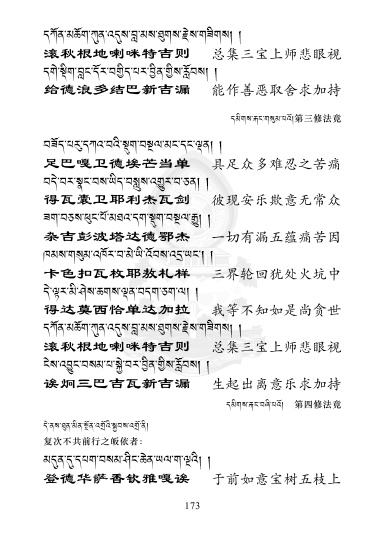 དཀོན་མཆོག་ཀུན་འདུས་བླ་མས་ཐུགས་རྗེས་གཟིགས། །
滚秋根地喇咪特吉则 总集三宝上师悲眼视
དགེ་སྡིག་བླང་དོར་བགྱིད་པར་བྱིན་གྱིས་རློབས། །
给德浪多结巴新吉漏 能作善恶取舍求加持
དམིགས་རྐང་གསུམ་པའོ། 第三修法竟
བཟོད་པར་དཀའ་བའི་སྡུག་བསྔལ་མང་དང་ལྡན། །
足巴嘎卫德埃芒当单 具足众多难忍之苦痛
བདེ་བར་སྣང་བས་ཡིད་བསླུས་འགྱུར་བ་ཅན། །
得瓦囊卫耶利杰瓦剑 彼现安乐欺意无常众
ཟག་བཅས་ཕུང་པོ་མཐའ་དག་སྡུག་བསྔལ་རྒྱུ། །
杂吉彭波塔达德鄂杰 一切有漏五蕴痛苦因
ཁམས་གསུམ་འཁོར་བ་མེ་ཡི་འོབས་འདྲ་ཡང་། །
卡色扣瓦枚耶敖札样 三界轮回犹处火坑中
དེ་ལྟར་མི་ཤེས་ཆགས་ལྡན་བདག་ཅག་ལ། །
得达莫西恰单达加拉 我等不知如是尚贪世
དཀོན་མཆོག་ཀུན་འདུས་བླ་མས་ཐུགས་རྗེས་གཟིགས། །
滚秋根地喇咪特吉则 总集三宝上师悲眼视
ངེས་འབྱུང་བསམ་པ་སྐྱེ་བར་བྱིན་གྱིས་རློབས། །
诶炯三巴吉瓦新吉漏 生起出离意乐求加持
དམིགས་རྐང་བཞི་པའོ། 第四修法竟
དེ་ནས་ཐུན་མིན་སྔོན་འགྲོའི་སྐྱབས་འགྲོ་ནི།
复次不共前行之皈依者：
མདུན་དུ་དཔག་བསམ་ཤིང་ཆེན་ཡལ་ག་ལྔའི། །
登德华萨香钦雅嘎诶 于前如意宝树五枝上
173